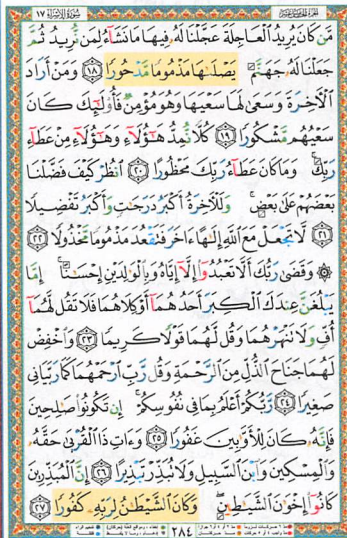 سُورَةُ الإِسْرَاءِ ١٧
مَّن كَانَ يُرِيدُ ٱلْعَاجِلَةَ عَجَّلْنَا لَهُۥ فِيهَا مَا نَشَآءُ لِمَن نُّرِيدُ ثُمَّ
جَعَلْنَا لَهُۥ جَهَنَّمَ يَصْلَىٰهَا مَذْمُومًا مَّدْحُورًا ١٨ وَمَنْ أَرَادَ
ٱلْأَخِرَةَ وَسَعَىٰ لَهَا سَعْيَهَا وَهُوَ مُؤْمِنٌ فَأُو۟لَٰٓئِكَ كَانَ
سَعْيُهُم مَّشْكُورًا ١٩ كُلًّا نُّمِدُّ هَٰٓؤُلَآءِ وَهَٰٓؤُلَآءِ مِنْ عَطَآءِ
رَبِّكَ ۚ وَمَا كَانَ عَطَآءُ رَبِّكَ مَحْظُورًا ٢٠ ٱنظُرْ كَيْفَ فَضَّلْنَا
بَعْضَهُمْ عَلَىٰ بَعْضٍ ۚ وَلَلْأَخِرَةُ أَكْبَرُ دَرَجَٰتٍ وَأَكْبَرُ تَفْضِيلًا
٢١ لَّا تَجْعَلْ مَعَ ٱللَّهِ إِلَٰهًا ءَاخَرَ فَتَقْعُدَ مَذْمُومًا مَّخْذُولًا ٢٢
۞ وَقَضَىٰ رَبُّكَ أَلَّا تَعْبُدُوٓا۟ إِلَّآ إِيَّاهُ وَبِٱلْوَٰلِدَيْنِ إِحْسَٰنًا ۚ إِمَّا
يَبْلُغَنَّ عِندَكَ ٱلْكِبَرَ أَحَدُهُمَآ أَوْ كِلَاهُمَا فَلَا تَقُل لَّهُمَآ
أُفٍّ وَلَا تَنْهَرْهُمَا وَقُل لَّهُمَا قَوْلًا كَرِيمًا ٢٣ وَٱخْفِضْ
لَهُمَا جَنَاحَ ٱلذُّلِّ مِنَ ٱلرَّحْمَةِ وَقُل رَّبِّ ٱرْحَمْهُمَا كَمَا رَبَّيَانِى
صَغِيرًا ٢٤ رَّبُّكُمْ أَعْلَمُ بِمَا فِى نُفُوسِكُمْ ۚ إِن تَكُونُوا۟ صَٰلِحِينَ
فَإِنَّهُۥ كَانَ لِلْأَوَّٰبِينَ غَفُورًا ٢٥ وَءَاتِ ذَا ٱلْقُرْبَىٰ حَقَّهُۥ
وَٱلْمِسْكِينَ وَٱبْنَ ٱلسَّبِيلِ وَلَا تُبَذِّرْ تَبْذِيرًا ٢٦ إِنَّ ٱلْمُبَذِّرِينَ
كَانُوٓا۟ إِخْوَٰنَ ٱلشَّيَٰطِينِ ۖ وَكَانَ ٱلشَّيْطَٰنُ لِرَبِّهِۦ كَفُورًا ٢٧
٢٨٤